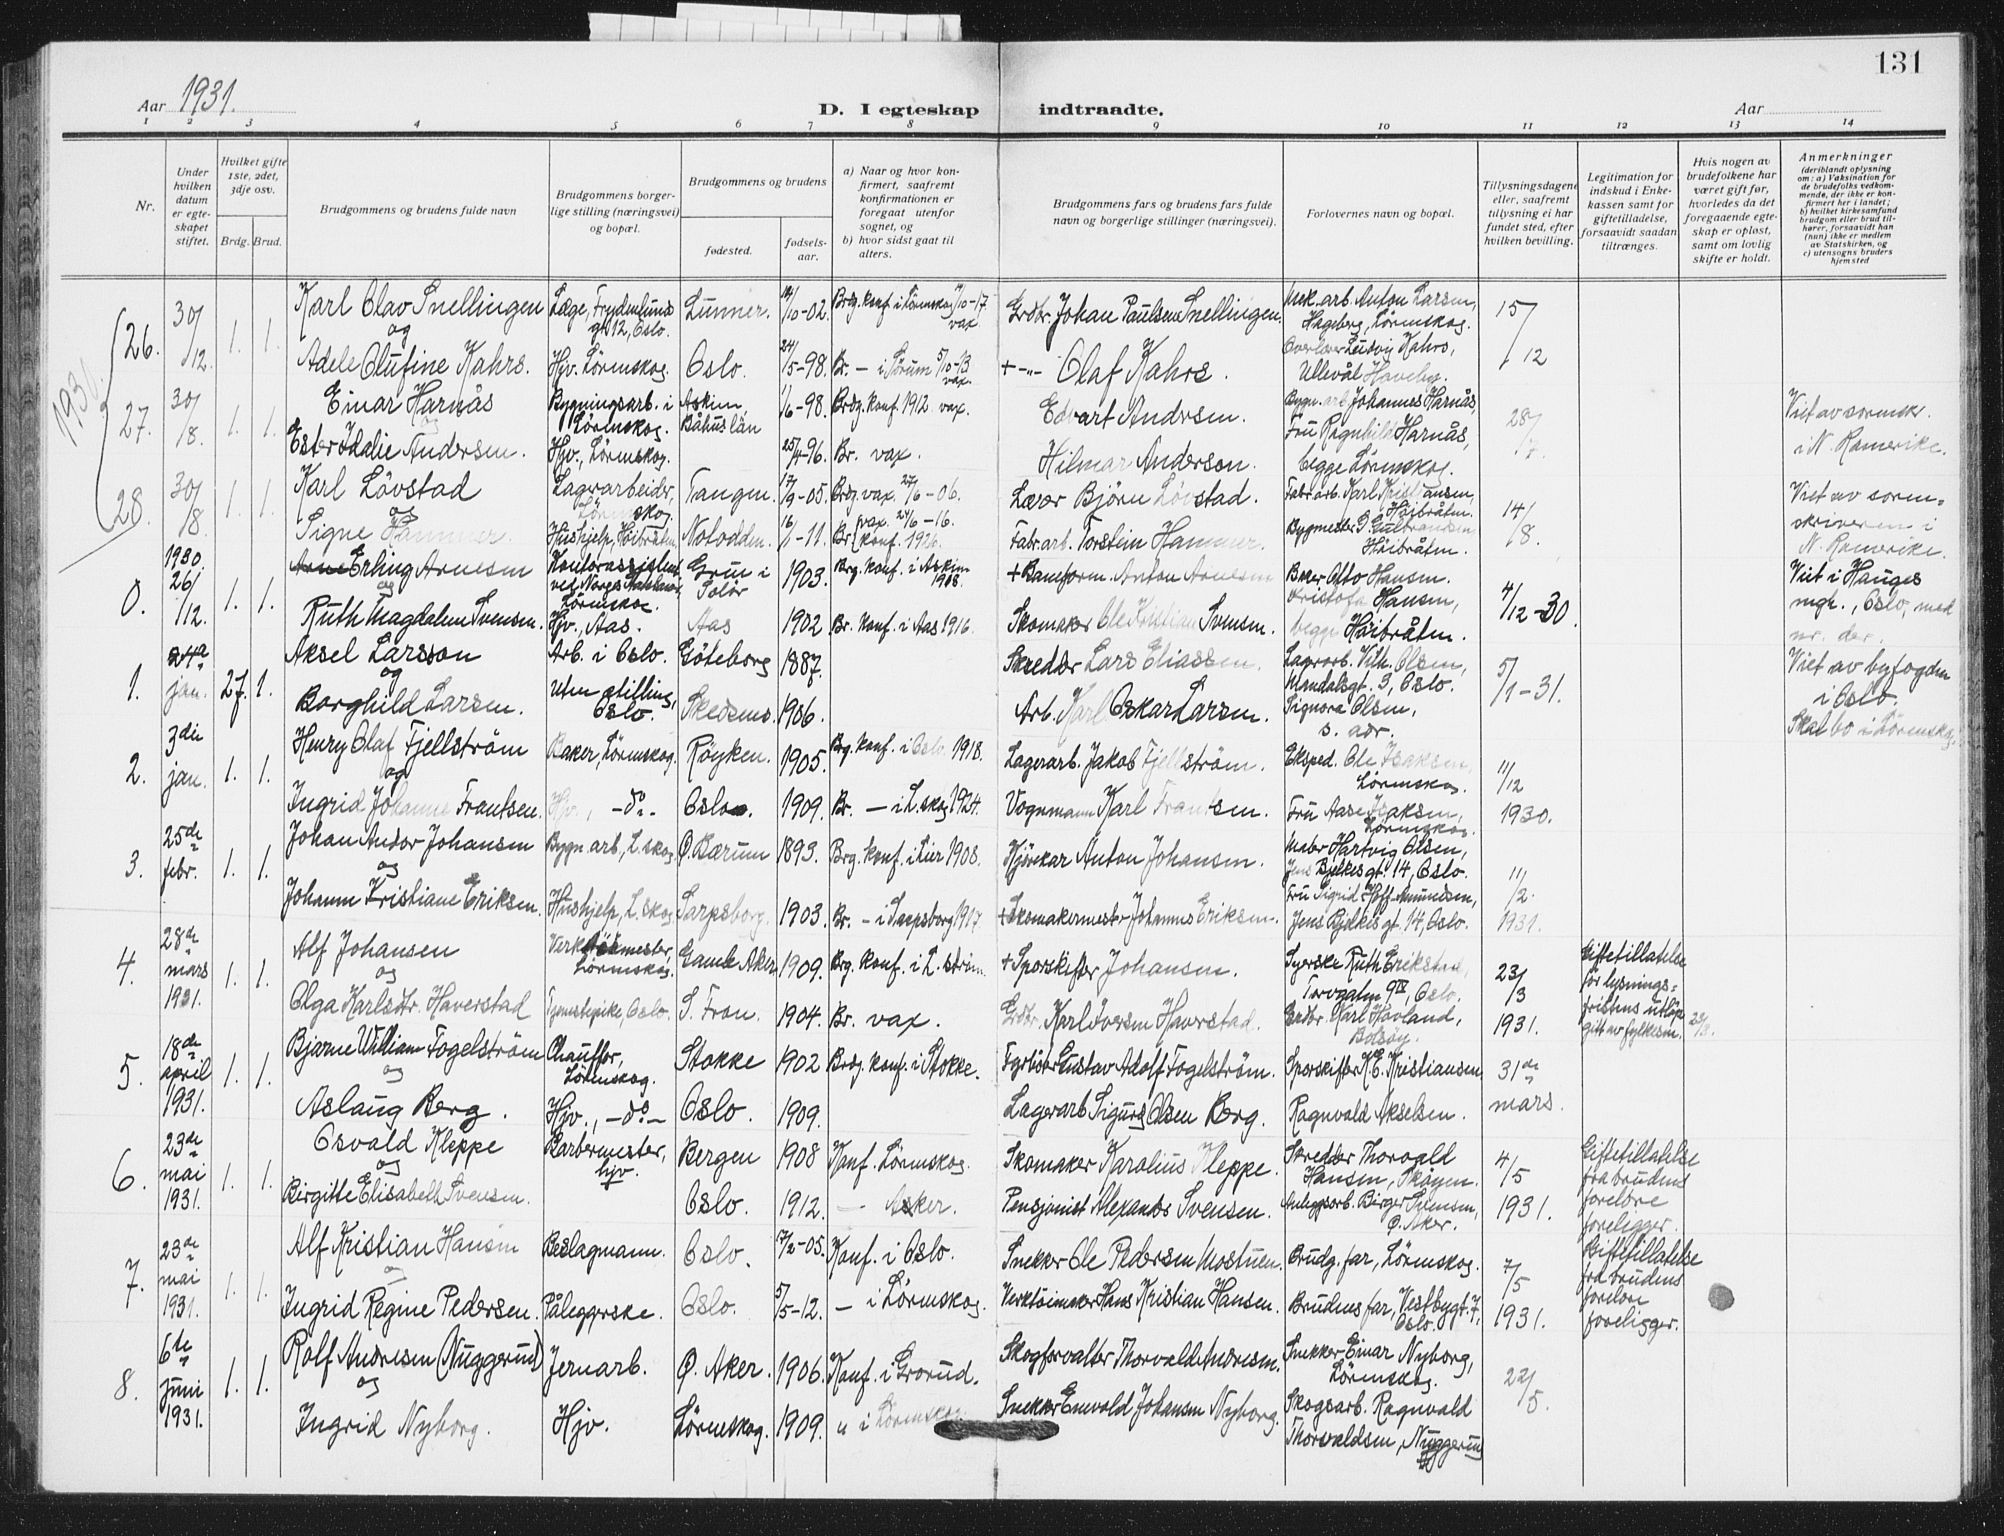 131
Aar 1931.
D. I egteskap indtraadte.
Aar
1 2 3 4 5 6 7 8 9 10 11 12 13 14
Nr.
Under hvilken datum er egteskapet stiftet.
Hvilket gifte 1ste, 2det, 3dje osv.
Brdg. Brud.
Brudgommens og brudens fulde navn
Brudgommens borgerlige stilling (næringsvei) og bopæl.
Brudgommens og brudens
fødested.
fødselsaar.
a) Naar og hvor konfirmert, saafremt konfirmationen er foregaat utenfor sognet, og
b) hvor sidst gaat til alters.
Brudgommens fars og brudens fars fulde navn og borgerlige stillinger (næringsvei).
Forlovernes navn og bopæl.
Tillysningsdagene eller, saafremt tillysning ei har fundet sted, efter hvilken bevilling.
Legitimation for indskud i Enkekassen samt for giftetilladelse, forsaavidt saadan tiltrænges.
Hvis nogen av brudefolkene har været gift før, hvorledes da det foregaaende egteskap er opløst, samt om lovlig skifte er holdt.
Anmerkninger
(deriblandt oplysning om: a) Vaksination for de brudefolks vedkommende, der ikke er konfirmert her i landet; b) hvilket kirkesamfund brudgom eller brud tilhører, forsaavidt han (hun) ikke er medlem av Statskirken, og c) utensogns bruders hjemsted
26. 30/12. 1. 1. Karl Olav Snellingen Læge, Frydenlunds gt 12, Oslo. Lunner. /10-02. Brdg. konf. i Lørenskog /10-17. vax Grdbr. Johan Paulsen Snellingen. Mek. arb. Anton Larsen, Hageberg, Lørenskog. 15/12
og
Adele Olufine Kahrs. Hjv. Lørenskog. Oslo. 24/5-98. Br. — i Sørum 5/10-13 vax. + -"- Olaf Kahrs. Overlærer Ludvig Kahrs, Ullevål Haveby.
27. 30/8. 1. 1. Einar Harnås Bygningsarb. i Lørenskog. Askim, /6-98. Brdg. konf. 1912. vax. Edvart Andersen. Bygn. arb. Johannes Harnås, 28/7. Viet av sorenskr. i N. Romerike.
og
Ester Idalie Andersen. Hjv., Lørenskog. Båhuslän 25/4-96. Br. vax. Hilmar Anderson. Fru Ragnhild Harnås, begge Lørenskog.
28. 30/8. 1. 1. Karl Lövstad Lagerarbeider, Lørenskog. Tangen. 17/9-05. Brdg. vax. 27/6-06. Lærer Björn Lövstad. Fabr. arb. Karl Kristiansen, Høibråten. 14/8. Viet av sorenskriveren i N. Romerike.
og
Signe Hammer. Hushjelp, Høibråten. Notodden. 16/1-11. Br. vax. 24/6-16. konf. 1926. Fabr. arb. Torstein Hammer. Bygmester G. Gulbrandsen Høibråten.
0. 1930. 26/12. 1. 1. Arne Erling Arnesen Kontorassistent ved Norges Statsbaner, Lørenskog. Grue i Solør 1903. Brg. konf. i Askim 1918. + Baneform. Anton Arnesen Baker Otto Hansen. 4/12-30. Viet i Hauges mgh., Oslo, med nr. der.
og
Ruth Magdalene Svensen. Hjv., Aas. Aas 1902. Br. konf. i Aas 1916. Skomaker Ole Kristian Svensen. Kristofa Hansen, begge Høibråten.
1. 24de jan. 27. 1. Aksel Larsson Arb. i Oslo. Göteborg 1887. Skredder Lars Eliassen. Lagerarb. Vilh. Olsen, Mandalsgt. 3, Oslo. 5/1-31. Viet av byfogden i Oslo. Skal bo i Lørenskog.
og
Borghild Larsen. Uten stilling, Oslo. Skedsmo. 1906. Arb. Karl Oskar Larsen. Signora Olsen, s. adr.
2. 3die jan. 1. 1. Henry Olaf Fjellström Baker, Lørenskog. Røyken. 1905. Brg. konf. i Oslo 1918. Lagerarb. Jakob Fjellström. Eksped. Ole Isaksen, Lørenskog. 11/12 1930.
og
Ingrid Johanne Frantsen. Hjv., -do- Oslo. 1909. Br. — i L. skog 1924. Vognmann Karl Frantsen. Fru Aase Isaksen, Lørenskog.
3. 25de febr. 1. 1. Johan Andor Johansen Bygn. arb, L. skog. Ø. Bærum 1893. Brg. konf. i Lier 1908. Kjørekar Anton Johansen. Maler Hartvig Olsen, Jens Bjelkes gt. 14, Oslo. 11/2. 1931.
og
Johanne Kristiane Eriksen. Hushjelp, L. skog Sarpsborg. 1903. Br. — i Sarpsborg 1917. + Skomakermester Johannes Eriksen. Fru Sigrid Hoff-Amundsen, Jens Bjelkes gt. 14, Oslo.
4. 28de mars 1931. 1. 1. Alf Johansen Verkstedmester, Lørenskog. Gamle Aker. 1909. Brg. konf. i L. + Sporskifter Johansen. Syerske Ruth Erikstad, Torvgaten 9 IV, Oslo. 23/3 1931. Giftetillatelse før lysningsfristens utløp gitt av fylkesm. 23/3.
og
Olga Karlsdtr. Haverstad Tjenestepike, Oslo. S. Fron. 1904. Br. vax. Grdbr. Karl Iversen Haverstad. Grdbr. Karl Hovland, Bolsøy.
5. 18de april 1931. 1. 1. Bjarne William Fogelström Chauffør, Lørenskog. Stokke 1902 Brdg. konf. i Stokke. Fyrbøter Gustav Adolf Fogelström. Sporskifter K. E. Kristiansen 31de mars.
og
Aslaug Berg. Hjv., -do- Oslo. 1909. Lagerarb. Sigurd Olsen Berg. Ragnvald Akselsen.
6. 23de mai 1931. 1. 1. Osvald Kleppe Barbermester, hjv. Bergen 1908 Konf. Lørenskog. Skomaker Karolius Kleppe. Skredder Thorvald Hansen, Skøyen. 4/5 1931. Giftetillatelse fra brudens foreldre foreligger.
og
Birgitte Elisabeth Svensen. Oslo. 1912. — Asker. Pensjonist Alexander Svensen. Anleggsarb. Birger Svensen, Ø. Aker.
7. 23de mai 1931. 1. 1. Alf Kristian Hansen Beslagmann. Oslo. 17/2-05. Konf. i Oslo. Snekker Ole Pedersen Mostuen. Brudg. far, Lørenskog. 7/5 1931. Giftetillatelse fra brudens forelore foreligger.
og
Ingrid Regine Pedersen. Påleggerske. Oslo. 5/5-12. — i Lørenskog. Verktöimaker Hans Kristian Hansen. Brudens far, Vestbygt. 7, Oslo.
8. 6te juni 1931. 1. 1. Rolf Andresen (Nuggerud) Jernarb. Ø. Aker. 1906. Konf. i Grorud. Skogforvalter Thorvald Andresen. Snekker Einar Nyborg, Lørenskog. 22/5.
og
Ingrid Nyborg. Hjv. Lørenskog. 1909. " i Lørenskog. Snekker Enevold Johansen Nyborg. Skogsarb. Ragnvald Thorvaldsen, Nuggerud